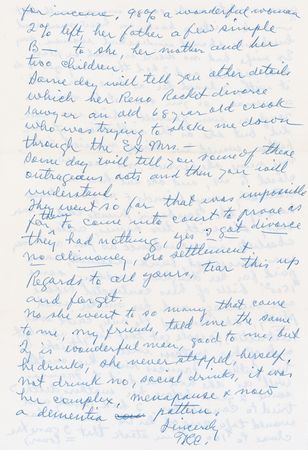 for income, 98% a wonderful woman
2% left, her father a few simple
B— to she, her mother and her
two children.
Some day will tell you other details
which her Reno Racket divorce
lawyer an old 68 year old crook
who was trying to shake me down
through the Ex Mrs—
Some day will tell you some of these
outrageous acts and then you will
understand.
They went so far that was impossible
for them to come into court to prove as
they had nothing, yes I got divorce
no alimoney, no settlement
Regards to all yours, tear this up
and forget.
No she went to so many that came
to me, my friends, told me the same
I is wonderful man, good to me, but
he drinks, she never stopped, herself,
not drunk no, social drinks, it was
her complex, menapause & now
a dementia pattern.
Sincerely